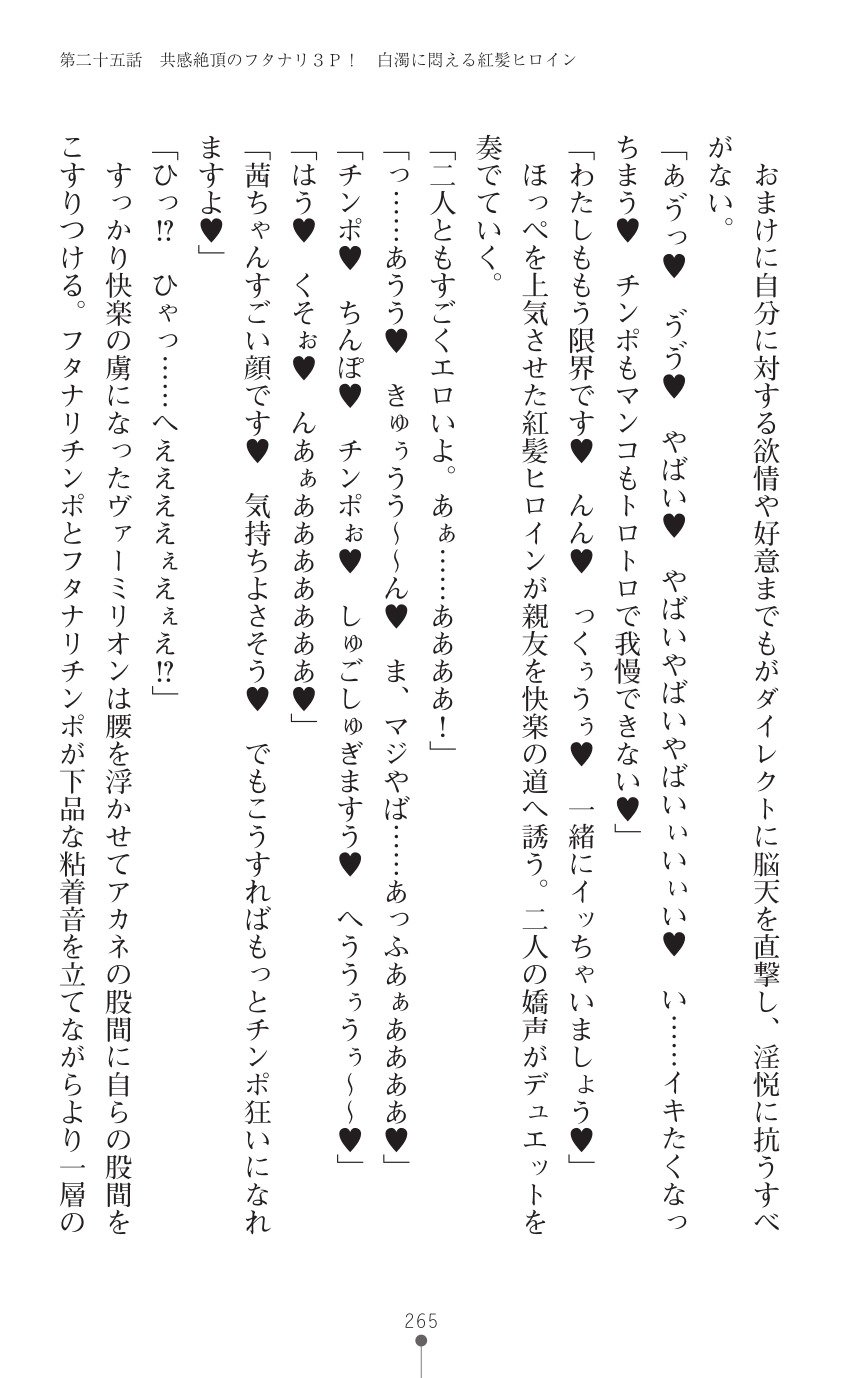 第二十五話　共感絶頂のフタナリ３Ｐ！　白濁に悶える紅髪ヒロイン
　おまけに自分に対する欲情や好意までもがダイレクトに脳天を直撃し、淫悦に抗うすべ
がない。
「あ゙っ♥　ゔゔ♥　やばい♥　やばいやばいやばいぃいぃい♥　い……イキたくなっ
ちまう♥　チンポもマンコもトロトロで我慢できない♥」
「わたしももう限界です♥　んん♥　っくぅうぅ♥　一緒にイッちゃいましょう♥」
　ほっぺを上気させた紅髪ヒロインが親友を快楽の道へ誘う。二人の嬌声がデュエットを
奏でていく。
「二人ともすごくエロいよ。あぁ……ああああ！」
「っ……あうう♥　きゅぅうう～～ん♥　ま、マジやば……あっふあぁああああ♥」
「チンポ♥　ちんぽ♥　チンポぉ♥　しゅごしゅぎますう♥　へううぅうぅ～～♥」
「はう♥　くそぉ♥　んあぁああああああああ♥」
「茜ちゃんすごい顔です♥　気持ちよさそう♥　でもこうすればもっとチンポ狂いになれ
ますよ♥」
「ひっ!?　ひゃっ……へええええぇえぇえ!?」
　すっかり快楽の虜になったヴァーミリオンは腰を浮かせてアカネの股間に自らの股間を
こすりつける。フタナリチンポとフタナリチンポが下品な粘着音を立てながらより一層の
265